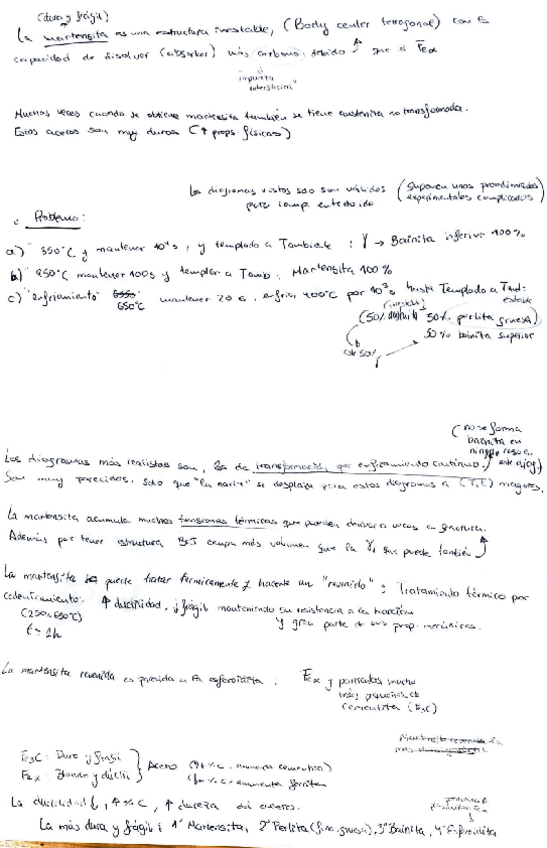 (dura y frágil)
La martensita es una estructura inestable, (Body center tetragonal) con la
capacidad de disolver (absorber) más carbono, debido que el Feα
"impureza
intersticial"
Muchas veces cuando se obtiene martensita también se tiene austenita no transformada.
Estos aceros son muy duros (↑ props. físicas)
Los diagramas vistos solo son válidos (Suponen unos procedimientos
para comp. eutectoide experimentales complicados)
Problema:
a) 350°C y mantener 10⁴s, y templado a Tambiente : γ → Bainita inferior 100%
b) 250°C mantener 100s y templar a Tamb. Martensita 100%
c) "enfriamiento" 650°C mantener 20 s. enfriar 400°C por 10³s hasta Templado a Tamb:
(50% 50% perlita gruesa)
50% γ 50% bainita superior
(no se forma
bainita en
Los diagramas más realistas son, los de transformación por enfriamiento continuo,
Son muy parecidos, solo que "la nariz" se desplaza para estos diagramas a (T,t) mayores.
La martensita acumula muchas tensiones térmicas que pueden a veces en fractura.
Además por tener estructura BCT ocupa más volumen que la γ, que puede también
La martensita se puede tratar térmicamente y hacerle un "revenido" : Tratamiento térmico por
calentamiento: ↑ ductilidad, ↓ frágil manteniendo su resistencia a la tracción
(250-650°C) y gran parte de sus prop. mecánicas.
t = 1h
La martensita revenida es parecida a la esferoidita. Feα y partículas mucho
más pequeñas de
cementita (Fe₃C)
Fe₃C : Duro y frágil
Feα : Blando y dúctil } Acero (↑% C, aumenta cementita)
(↓% C, aumenta ferrita)
La ductilidad ↓, ↑ % C, ↑ dureza del acero.
La más dura y frágil : 1º Martensita, 2º Perlita (fina, gruesa), 3º Bainita, 4º Esferoidita